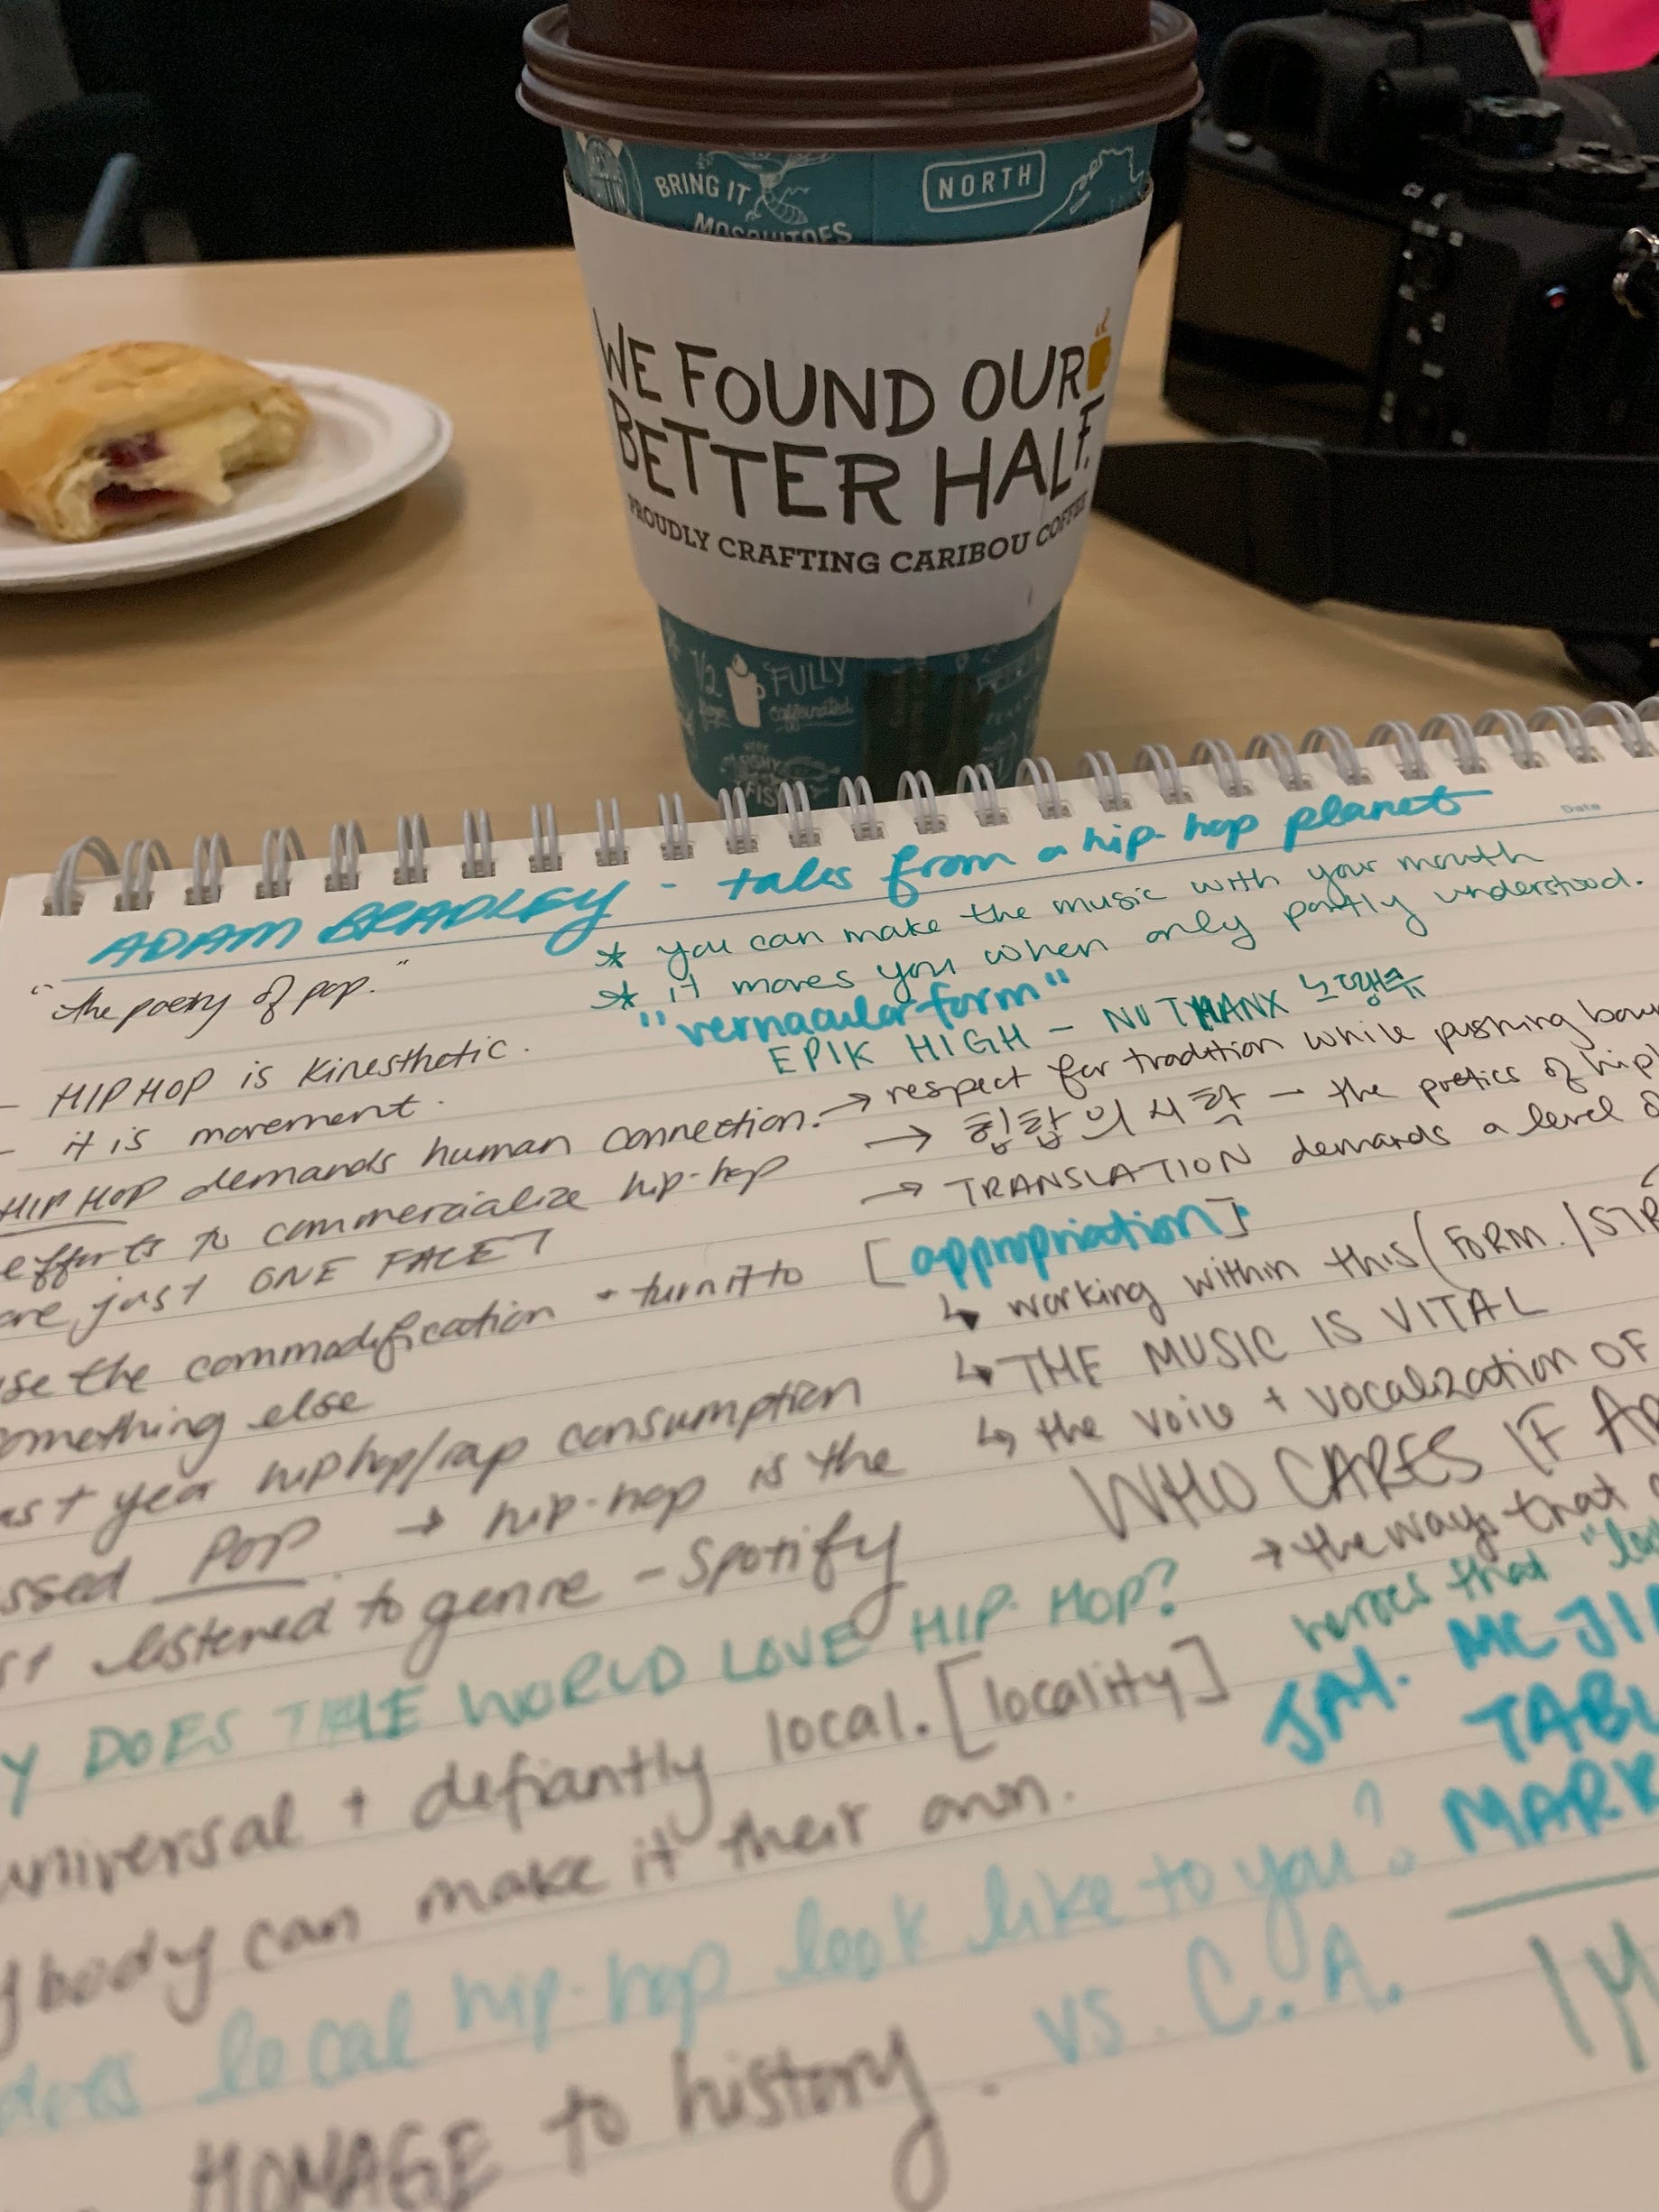 BRING IT
MOSQUITOES
NORTH
WE FOUND OUR
BETTER HALF.
PROUDLY CRAFTING CARIBOU COFFEE
1/2
FULLY
caffeinated
Date
ADAM BRADLEY - tales from a hip-hop planet
"the poetry of pop."
* you can make the music with your mouth
* it moves you when only partly understood.
"vernacular form"
EPIK HIGH - NO THANX 노땡큐
- HIP HOP is kinesthetic.
- it is movement.
HIP HOP demands human connection.
efforts to commercialize hip-hop
are just ONE FACET
the commodification + turn it to
something else
year hiphop/rap consumption
POP → hip-hop is the
listened to genre - Spotify
→ respect for tradition while pushing
→ 힙합의 시학 - the poetics of
→ TRANSLATION demands a level
[appropriation]
↳ working within this (FORM. /
↳ THE MUSIC IS VITAL
↳ the voice + vocalization OF
WHO CARES IF
→ the ways that
heroes that
JAY. MC
DOES THE WORLD LOVE HIP-HOP?
universal + defiantly local. [locality]
body can make it their own.
does local hip-hop look like to you?
vs. C.A.
HOMAGE to history.